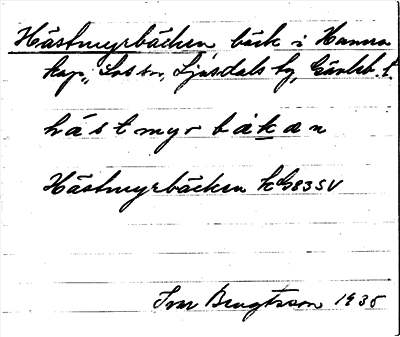 Hästmyrbäcken, bäck i Hamra
kap., Los sn, Ljusdals tg, Gävleb. l.
hástmyrbäkan
Hästmyrbäcken kG83SV
Ivar Bengtsson 1935